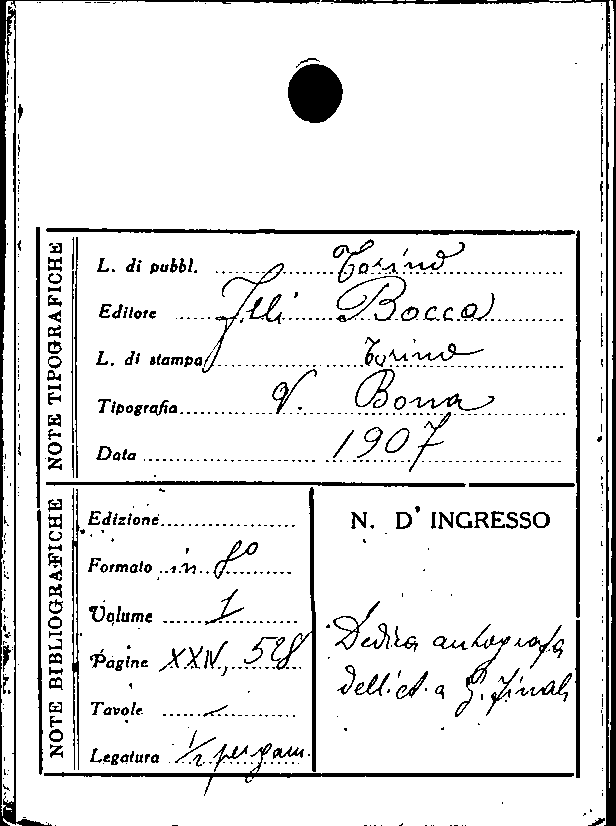 NOTE TIPOGRAFICHE
L. di pubbl. Torino
Editore Flli Bocca
L. di stampa Torino
Tipografia V. Bona
Data 1907
NOTE BIBLIOGRAFICHE
Edizione
Formato in 8º
Volume 1
Pagine XXIV, 528
Tavole —
Legatura 1/2 pergam.
N. D' INGRESSO
Dedica autografa
dell'a. a G. Finali